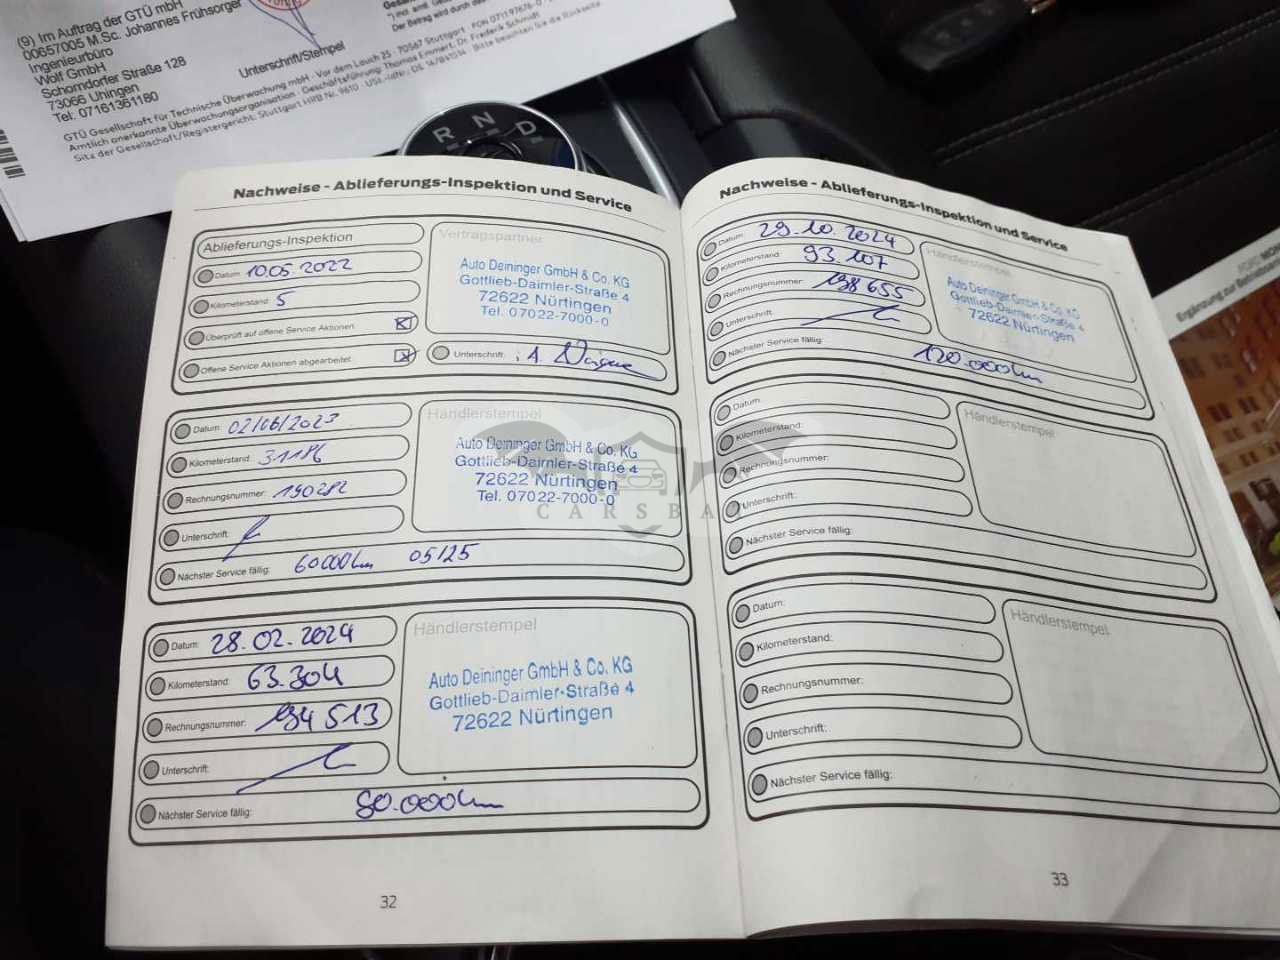 (9) Im Auftrag der GTÜ mbH
00657005 M.Sc. Johannes Frühsorger
Ingenieurbüro
Wolf GmbH
Schorndorfer Straße 128
73066 Uhingen
Tel: 07161361180
Unterschrift/Stempel
Der Betrag wird durch
GTÜ Gesellschaft für Technische Überwachung mbH · Vor dem Lauch 25 · 70567 Stuttgart · FON 0711 97676-0
Amtlich anerkannte Überwachungsorganisation · Geschäftsführung: Thomas Emmert, Dr. Frederik Schmidt
Sitz der Gesellschaft/Registergericht: Stuttgart HRB Nr. 9610 · USt.-IdNr.: Bitte beachten Sie die Rückseite.
R N D
Nachweise - Ablieferungs-Inspektion und Service
Ablieferungs-Inspektion
Datum: 10.05.2022
Kilometerstand: 5
Überprüft auf offene Service Aktionen:
Offene Service Aktionen abgearbeitet:
Vertragspartner
Auto Deininger GmbH & Co. KG
Gottlieb-Daimler-Straße 4
72622 Nürtingen
Tel. 07022-7000-0
Unterschrift:
Datum: 02/06/2023
Kilometerstand: 31186
Rechnungsnummer: 190282
Unterschrift:
Nächster Service fällig: 60000km 05/25
Händlerstempel
Auto Deininger GmbH & Co. KG
Gottlieb-Daimler-Straße 4
72622 Nürtingen
Tel. 07022-7000-0
Datum: 28.02.2024
Kilometerstand: 63.304
Rechnungsnummer: 194513
Unterschrift:
Nächster Service fällig: 80.000km
Händlerstempel
Auto Deininger GmbH & Co. KG
Gottlieb-Daimler-Straße 4
72622 Nürtingen
32
Nachweise - Ablieferungs-Inspektion und Service
Datum: 29.10.2024
Kilometerstand: 93.107
Rechnungsnummer: 198655
Unterschrift:
Nächster Service fällig: 120.000km
Händlerstempel
Auto Deininger GmbH & Co. KG
Gottlieb-Daimler-Straße 4
72622 Nürtingen
Datum:
Kilometerstand:
Rechnungsnummer:
Unterschrift:
Nächster Service fällig:
Händlerstempel
Datum:
Kilometerstand:
Rechnungsnummer:
Unterschrift:
Nächster Service fällig:
Händlerstempel
33
Ergänzung zur
CARSBA